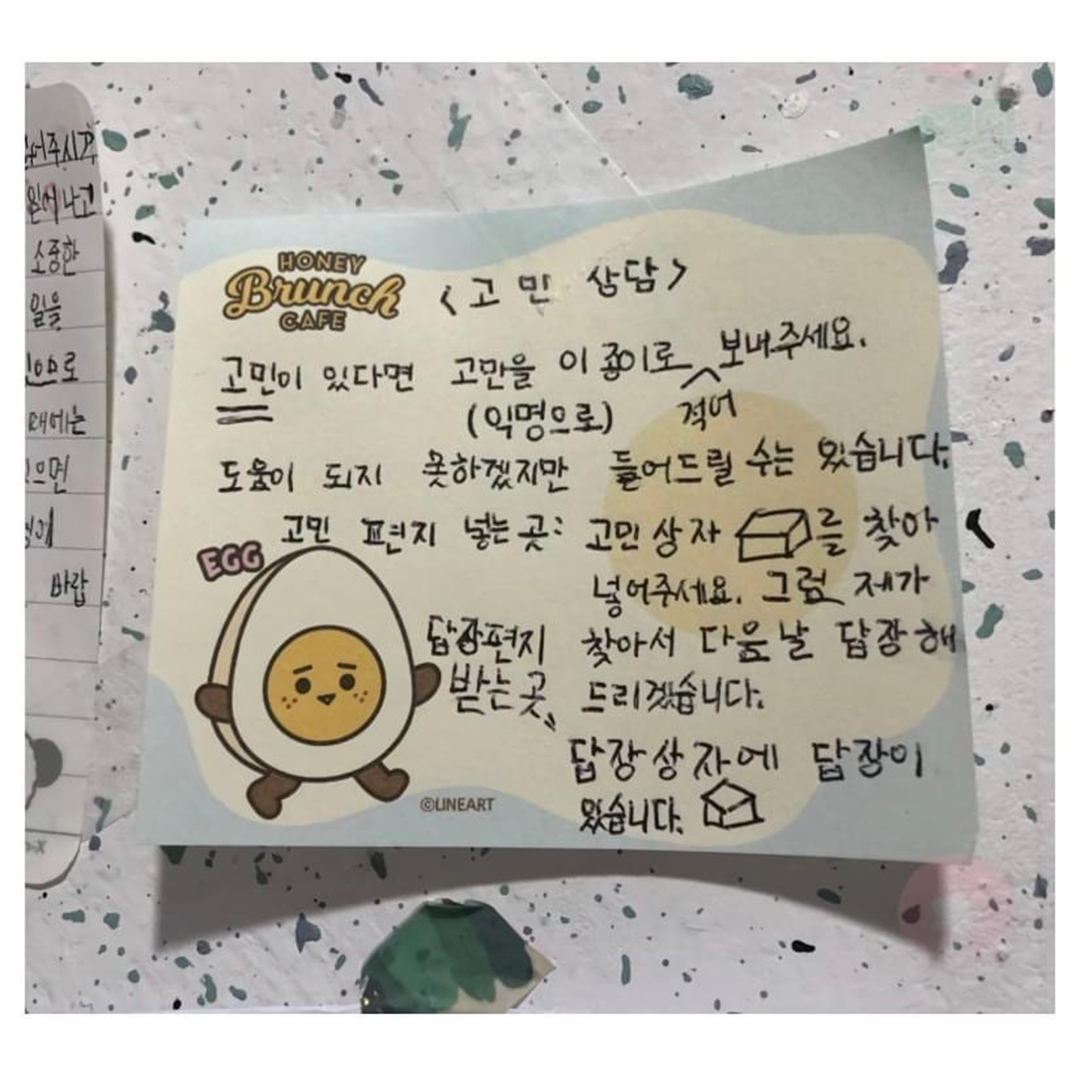 어주시기
나고
소중한
일을
으로
때에는
으면
바랍
HONEY
Brunch
CAFE
<고민 상담>
고민이 있다면 고만을 이 종이로 적어 보내주세요.
(익명으로)
도움이 되지 못하겠지만 들어드릴 수는 있습니다.
고민 편지 넣는 곳: 고민상자 를 찾아
넣어주세요. 그럼 제가
찾아서 다음날 답장해
드리겠습니다.
EGG
답장편지
받는 곳
답장상자에 답장이
있습니다.
©LINEART